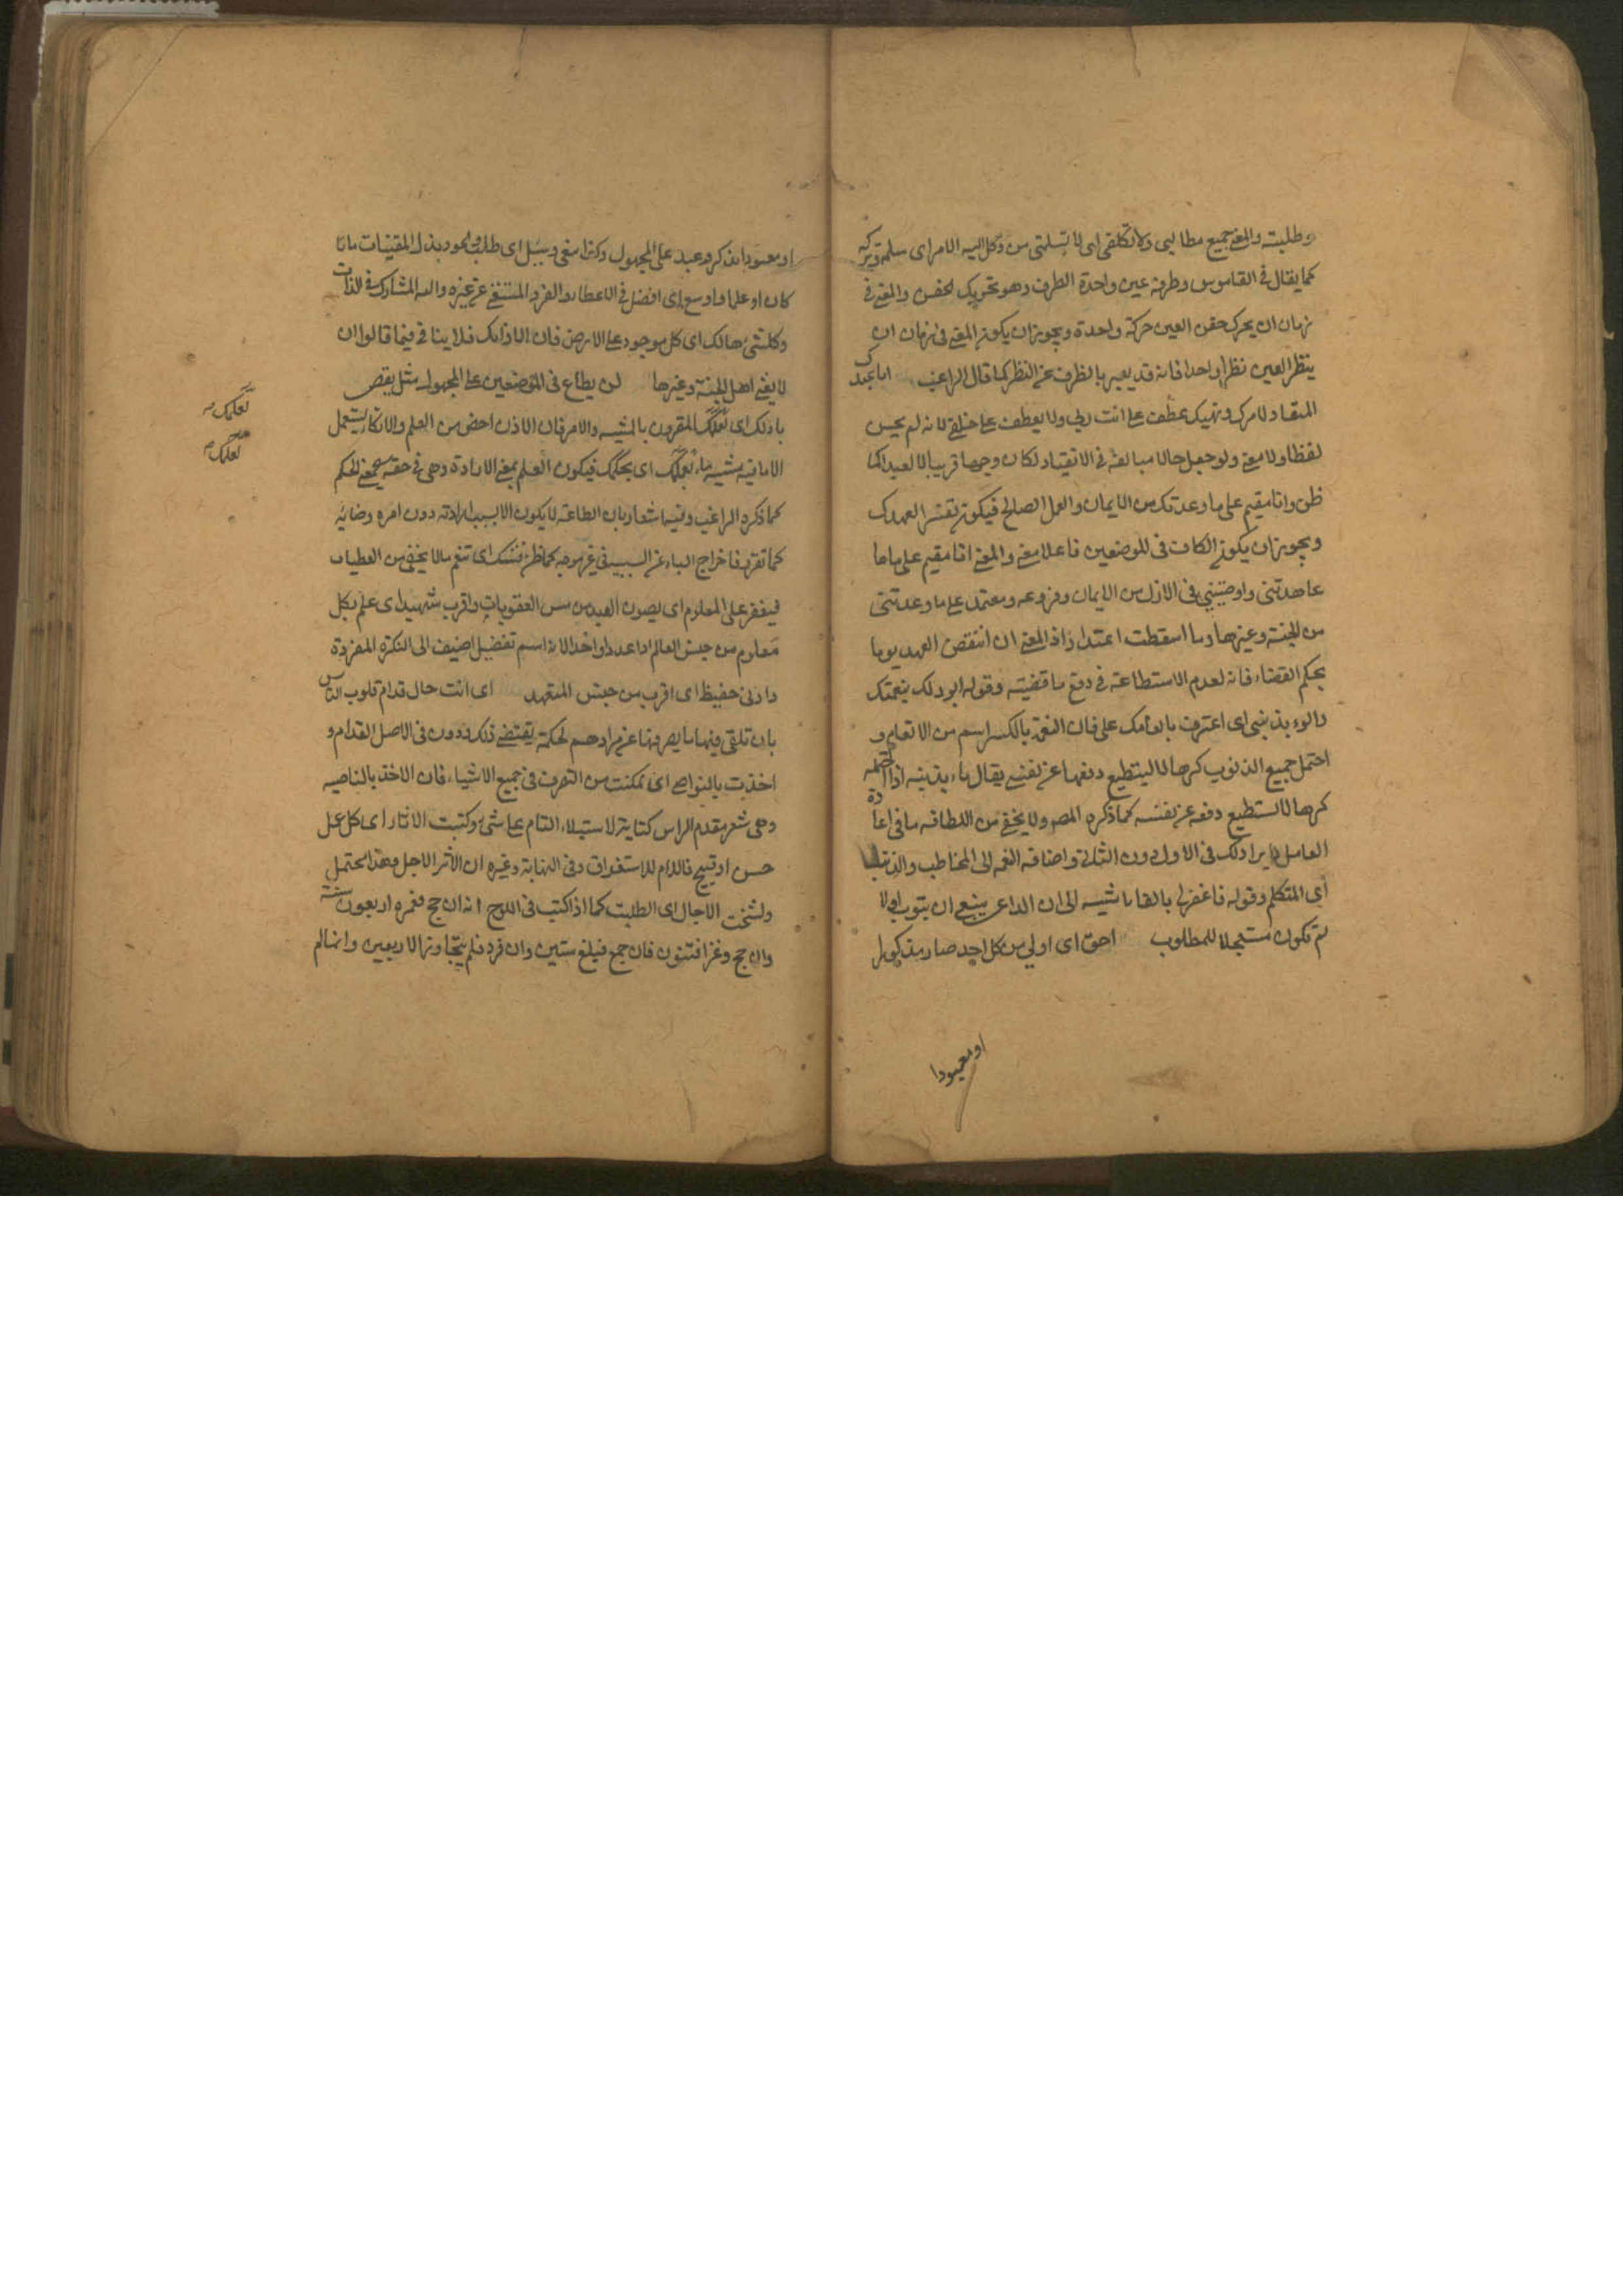 وطلبته والمعنى جميع مطالبي ولا تكلفني اى لا تسلمني من وكل اليه الامر اى سلمه وتركه
كما يقال فى القاموس وطرفة عين واحدة الطرف وهو تحريك الجفن والمعنى فى
زمان ان يحرك جفن العين حركة واحدة ويجوز ان يكون المعنى فى زمان ان
ينظر العين نظرا واحدا فانه قد يعبر بالطرف عن النظر كما قال الراغب انا عبدك
المنقاد لامرك ونهيك عطف على انت ربي ولا يعطف على خلقتنى لانه لم يحسن
لفظا ولا معنى ولو جعل حالا مبالغة فى الانقياد لكان وجها قريبا لا بعيدا كما
ظن وانا مقيم على ما وعدتك من الايمان والعمل الصالح فيكون تفسير العهدك
ويجوز ان يكون الكاف فى الموضعين فاعلا معنى والمعنى انا مقيم على ما
عاهدتنى واوصيتنى فى الازل من الايمان وفروعه ومعتمد على ما وعدتنى
من الجنة وغيرها وما استطعت اعتذار اذ المعنى ان انتقض العهد يوما
بحكم القضاء فانه لعدم الاستطاعة فى دفع ما قضيته وقوله ابوء لك بنعمتك
وابوء بذنبي اى اعترف بانعامك على فان النعمة بالكسر اسم من الانعام و
احتمل جميع الذنوب كرها لا يستطيع دفعها عن نفسه يقال باء بذنبه اذا احتمله
كرها لا يستطيع دفعه عن نفسه كما ذكره المصر ولا يخفى من اللطافة ما فى اعادة
العامل وايراد لك فى الاول دون الثانى واضافة النعمة الى المخاطب والذنب
الى المتكلم وقوله فاغفر لى بالفاء تنبيه الى ان الداعى ينبغى ان يتوب اولا
ثم تكون مستعجلا للمطلوب احق اى اولى من كل احد صار مذكورا
او معبودا
او معبودا من ذكر وعبد على المجهول وكذا ابتغى وسئل اى طلب والجود بذل المقتنيات مالا
كان او علما واوسع اى افضل فى الاعطاء والفرد المستغنى عن غيره والند المشارك فى الذات
وكل شئ هالك اى كل موجود على الارض فان الا ذاتك فلا ينافى فيما قالوا ان
لا يفنى اهل الجنة وغيرها لن يطاع فى الموضعين على المجهول مثل يعصى
باذنك اى بعلمك المقرون بالمشيه والامر فان الاذن اخص من العلم ولا تكاد يستعمل
الا ما فيه مشيه ما بعلمك اى بحكمك فيكون العلم بمعنى الارادة وهى فى حقه بمعنى الحكم
كما ذكره الراغب وفيه اشعار بان الطاعة لا يكون الا بسبب ارادته دون امره ورضائه
كما تقرر فاخراج الباء عن السببيه فى غير موجه كما ظن فتشكر اى تنعم مالا يخفى من العطيات
فيغفر على المعلوم اى يصون العبد من مس العقوبات واقرب شهيد اى علم بكل
معلوم من جنس العالم اذا عدد واحدا لانه اسم تفضيل اضيف الى النكرة المفردة
وادنى حفيظ اى اقرب من جنس المتعهد اى انت حال قدام قلوب الناس
بان تلقى فيها ما يصرفها عن مرادهم لحكمة يقتضى ذلك ودون فى الاصل القدام و
اخذت بالنواصى اى تمكنت من التصرف فى جميع الاشياء فان الاخذ بالناصيه
وهى شعر مقدم الراس كناية لاستيلاء التام على شئ وكتبت الاثار اى كل عمل
حسن او قبيح فاللام للاستغراق وفى النهاية وغيره ان الاثر الاجل وهذا يحتمل
ونسخت الاجال اى اطلبت كما اذا كتب فى اللوح انه ان حج فعمره اربعون سنة
وان حج وغزا فستون فان جمع فيبلغ ستين وان فرد فلم يتجاوز الاربعين وانما لم
بعلمك
بعلمك